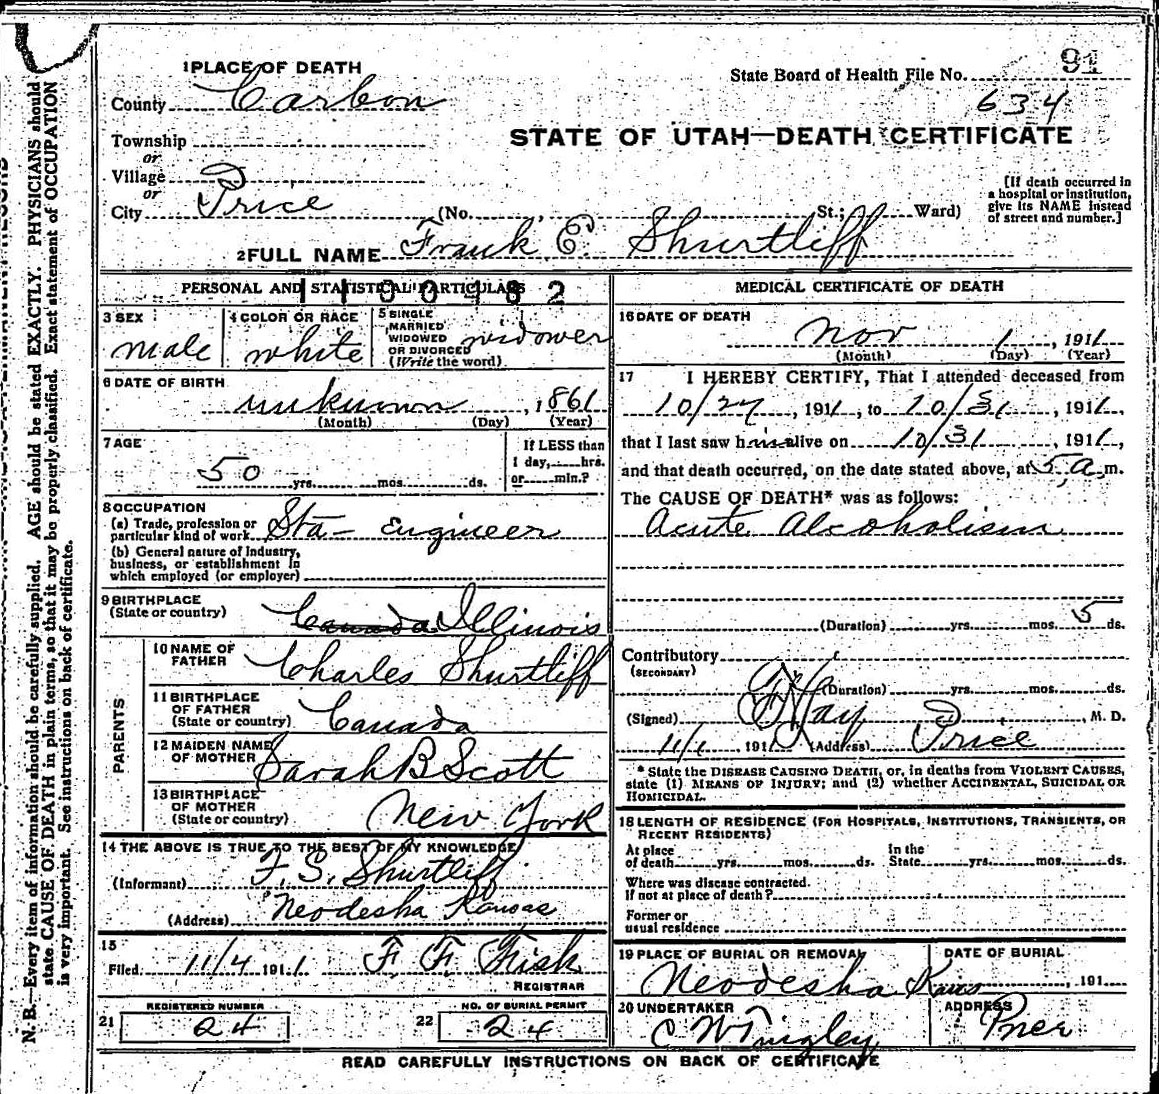 91
1 PLACE OF DEATH
State Board of Health File No.
County Carbon
634
STATE OF UTAH—DEATH CERTIFICATE
Township
or
Village
or
City Price (No. , St.; Ward)
[If death occurred in
a hospital or institution,
give its NAME instead
of street and number.]
2 FULL NAME Frank E. Shurtliff
PERSONAL AND STATISTICAL PARTICULARS
3 SEX
male
4 COLOR OR RACE
white
5 SINGLE
MARRIED
WIDOWED
OR DIVORCED
(Write the word.)
widower
6 DATE OF BIRTH
unknown , 1861
(Month) (Day) (Year)
7 AGE
50 yrs. mos. ds.
If LESS than
1 day, hrs.
or min.?
8 OCCUPATION
(a) Trade, profession or
particular kind of work Sta- Engineer
(b) General nature of Industry,
business, or establishment in
which employed (or employer)
9 BIRTHPLACE
(State or country) Canada Illinois
PARENTS
10 NAME OF
FATHER Charles Shurtliff
11 BIRTHPLACE
OF FATHER
(State or country) Canada
12 MAIDEN NAME
OF MOTHER Sarah B Scott
13 BIRTHPLACE
OF MOTHER
(State or country) New York
14 THE ABOVE IS TRUE TO THE BEST OF MY KNOWLEDGE
(Informant) F. S. Shurtliff
(Address) Neodesha Kansas
15
Filed 11/4 1911 F. F. Fisk
REGISTRAR
21 REGISTERED NUMBER
24
22 NO. OF BURIAL PERMIT
24
MEDICAL CERTIFICATE OF DEATH
16 DATE OF DEATH
Nov 1, 1911
(Month) (Day) (Year)
17 I HEREBY CERTIFY, That I attended deceased from
10/27, 1911, to 10/31, 1911,
that I last saw him alive on 10/31, 1911,
and that death occurred, on the date stated above, at 5 a.m.
The CAUSE OF DEATH* was as follows:
Acute Alcoholism
(Duration) yrs. mos. 5 ds.
Contributory
(SECONDARY)
(Duration) yrs. mos. ds.
(Signed) , M. D.
11/1, 1911 (Address) Price
* State the DISEASE CAUSING DEATH, or, in deaths from VIOLENT CAUSES,
state (1) MEANS OF INJURY; and (2) whether ACCIDENTAL, SUICIDAL OR
HOMICIDAL.
18 LENGTH OF RESIDENCE (FOR HOSPITALS, INSTITUTIONS, TRANSIENTS, OR
RECENT RESIDENTS)
At place
of death yrs. mos. ds.
In the
State yrs. mos. ds.
Where was disease contracted.
If not at place of death?
Former or
usual residence
19 PLACE OF BURIAL OR REMOVAL
Neodesha Kans
DATE OF BURIAL
, 191
20 UNDERTAKER
C W Tingley
ADDRESS
Price
READ CAREFULLY INSTRUCTIONS ON BACK OF CERTIFICATE
N. B.—Every item of information should be carefully supplied. AGE should be stated EXACTLY. PHYSICIANS should
state CAUSE OF DEATH in plain terms, so that it may be properly classified. Exact statement of OCCUPATION
is very important. See instructions on back of certificate.